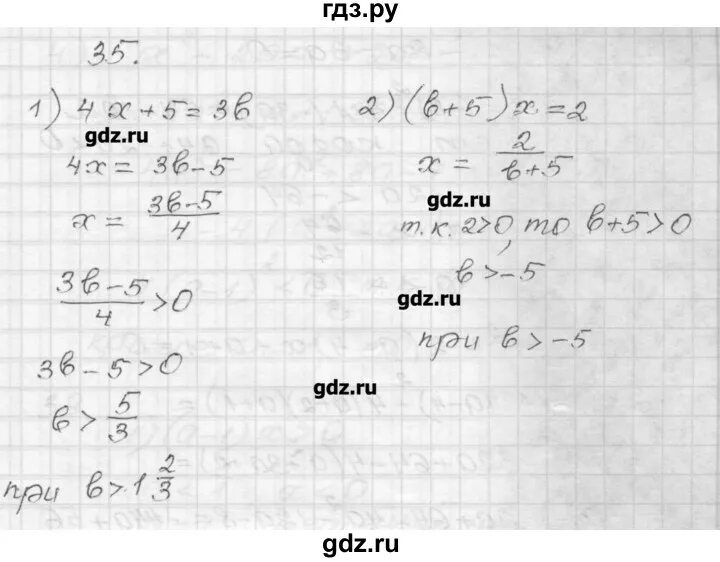 гдз.ру
35.
1) 4x + 5 = 3в
gdz.ru
4x = 3в - 5
x = 3в-5/4
3в-5/4 > 0
3в - 5 > 0
в > 5/3
при в > 1 2/3
2) (в+5)x = 2
x = 2/в+5
gdz.ru
т.к. 2>0, то в+5>0
в > -5
gdz.ru
при в > -5
gdz.ru
gdz.ru